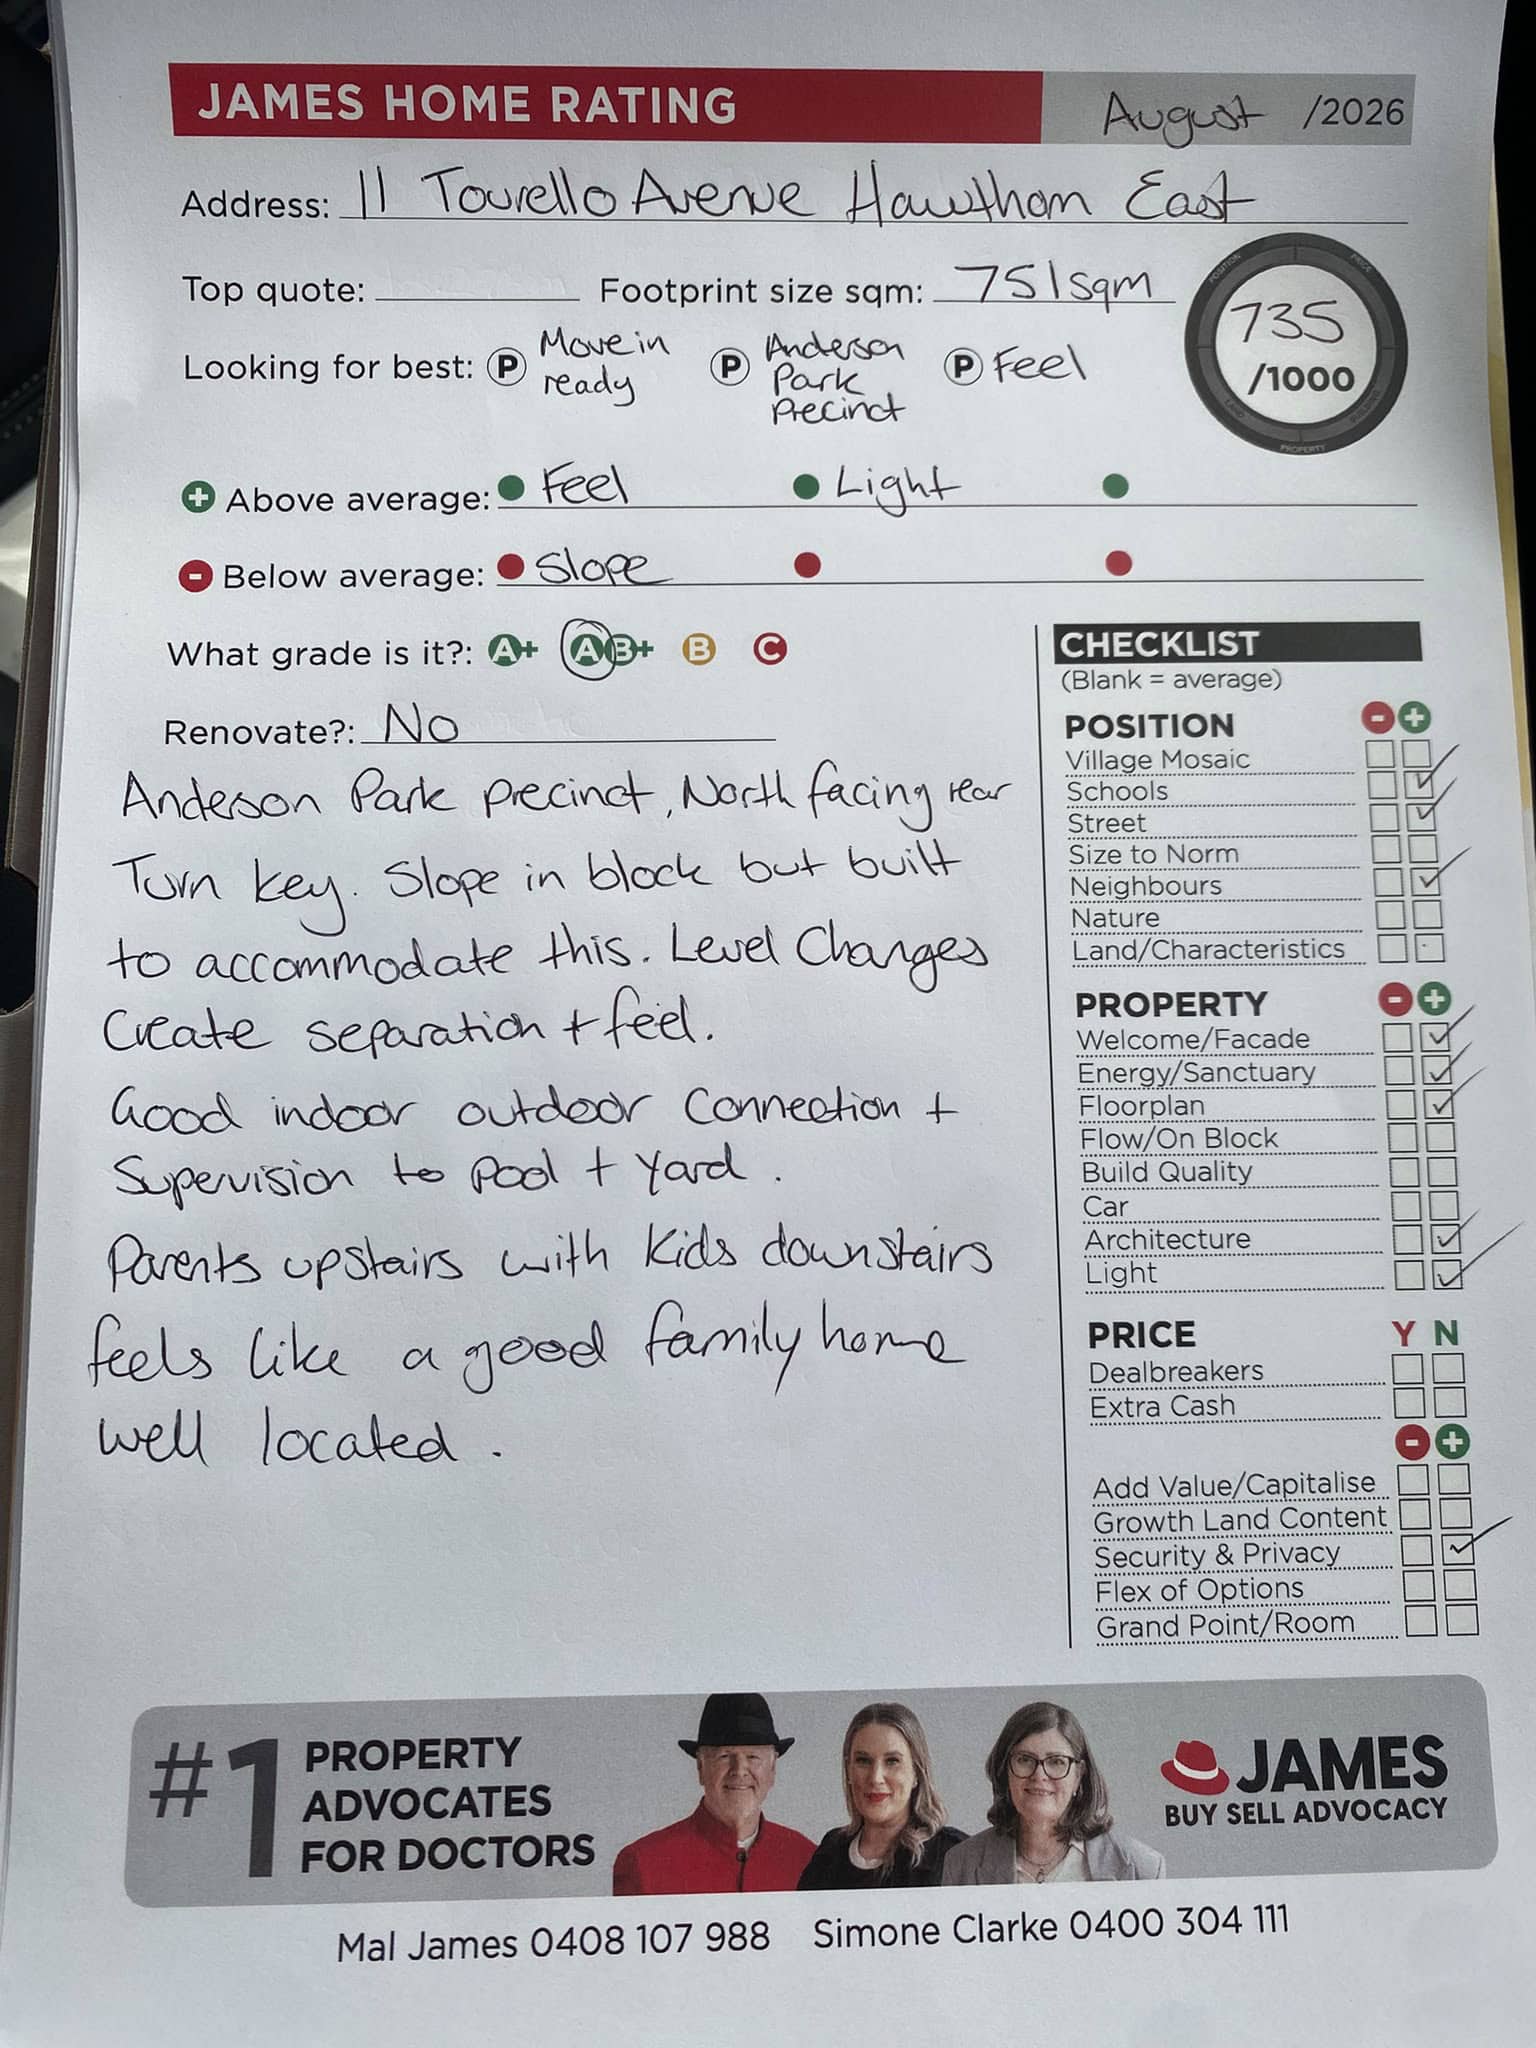 JAMES HOME RATING August /2026
Address: 11 Tourello Avenue Hawthorn East
Top quote: Footprint size sqm: 751sqm
POSITION PRICE
735
/1000
LAND BUILDING
PROPERTY
Looking for best: P Move in ready P Anderson Park Precinct P Feel
+ Above average: Feel Light
- Below average: Slope
What grade is it?: A+ A B+ B C
Renovate?: No
Anderson Park precinct, North facing rear
Turn key. Slope in block but built
to accommodate this. Level Changes
Create separation + feel.
Good indoor outdoor connection +
Supervision to pool + yard.
Parents upstairs with kids downstairs
feels like a good family home
well located.
CHECKLIST
(Blank = average)
POSITION - +
Village Mosaic
Schools ✓
Street ✓
Size to Norm
Neighbours ✓
Nature
Land/Characteristics
PROPERTY - +
Welcome/Facade ✓
Energy/Sanctuary ✓
Floorplan ✓
Flow/On Block
Build Quality
Car
Architecture ✓
Light ✓
PRICE Y N
Dealbreakers
Extra Cash
- +
Add Value/Capitalise
Growth Land Content
Security & Privacy ✓
Flex of Options
Grand Point/Room
#1 PROPERTY
ADVOCATES
FOR DOCTORS
JAMES
BUY SELL ADVOCACY
Mal James 0408 107 988 Simone Clarke 0400 304 111